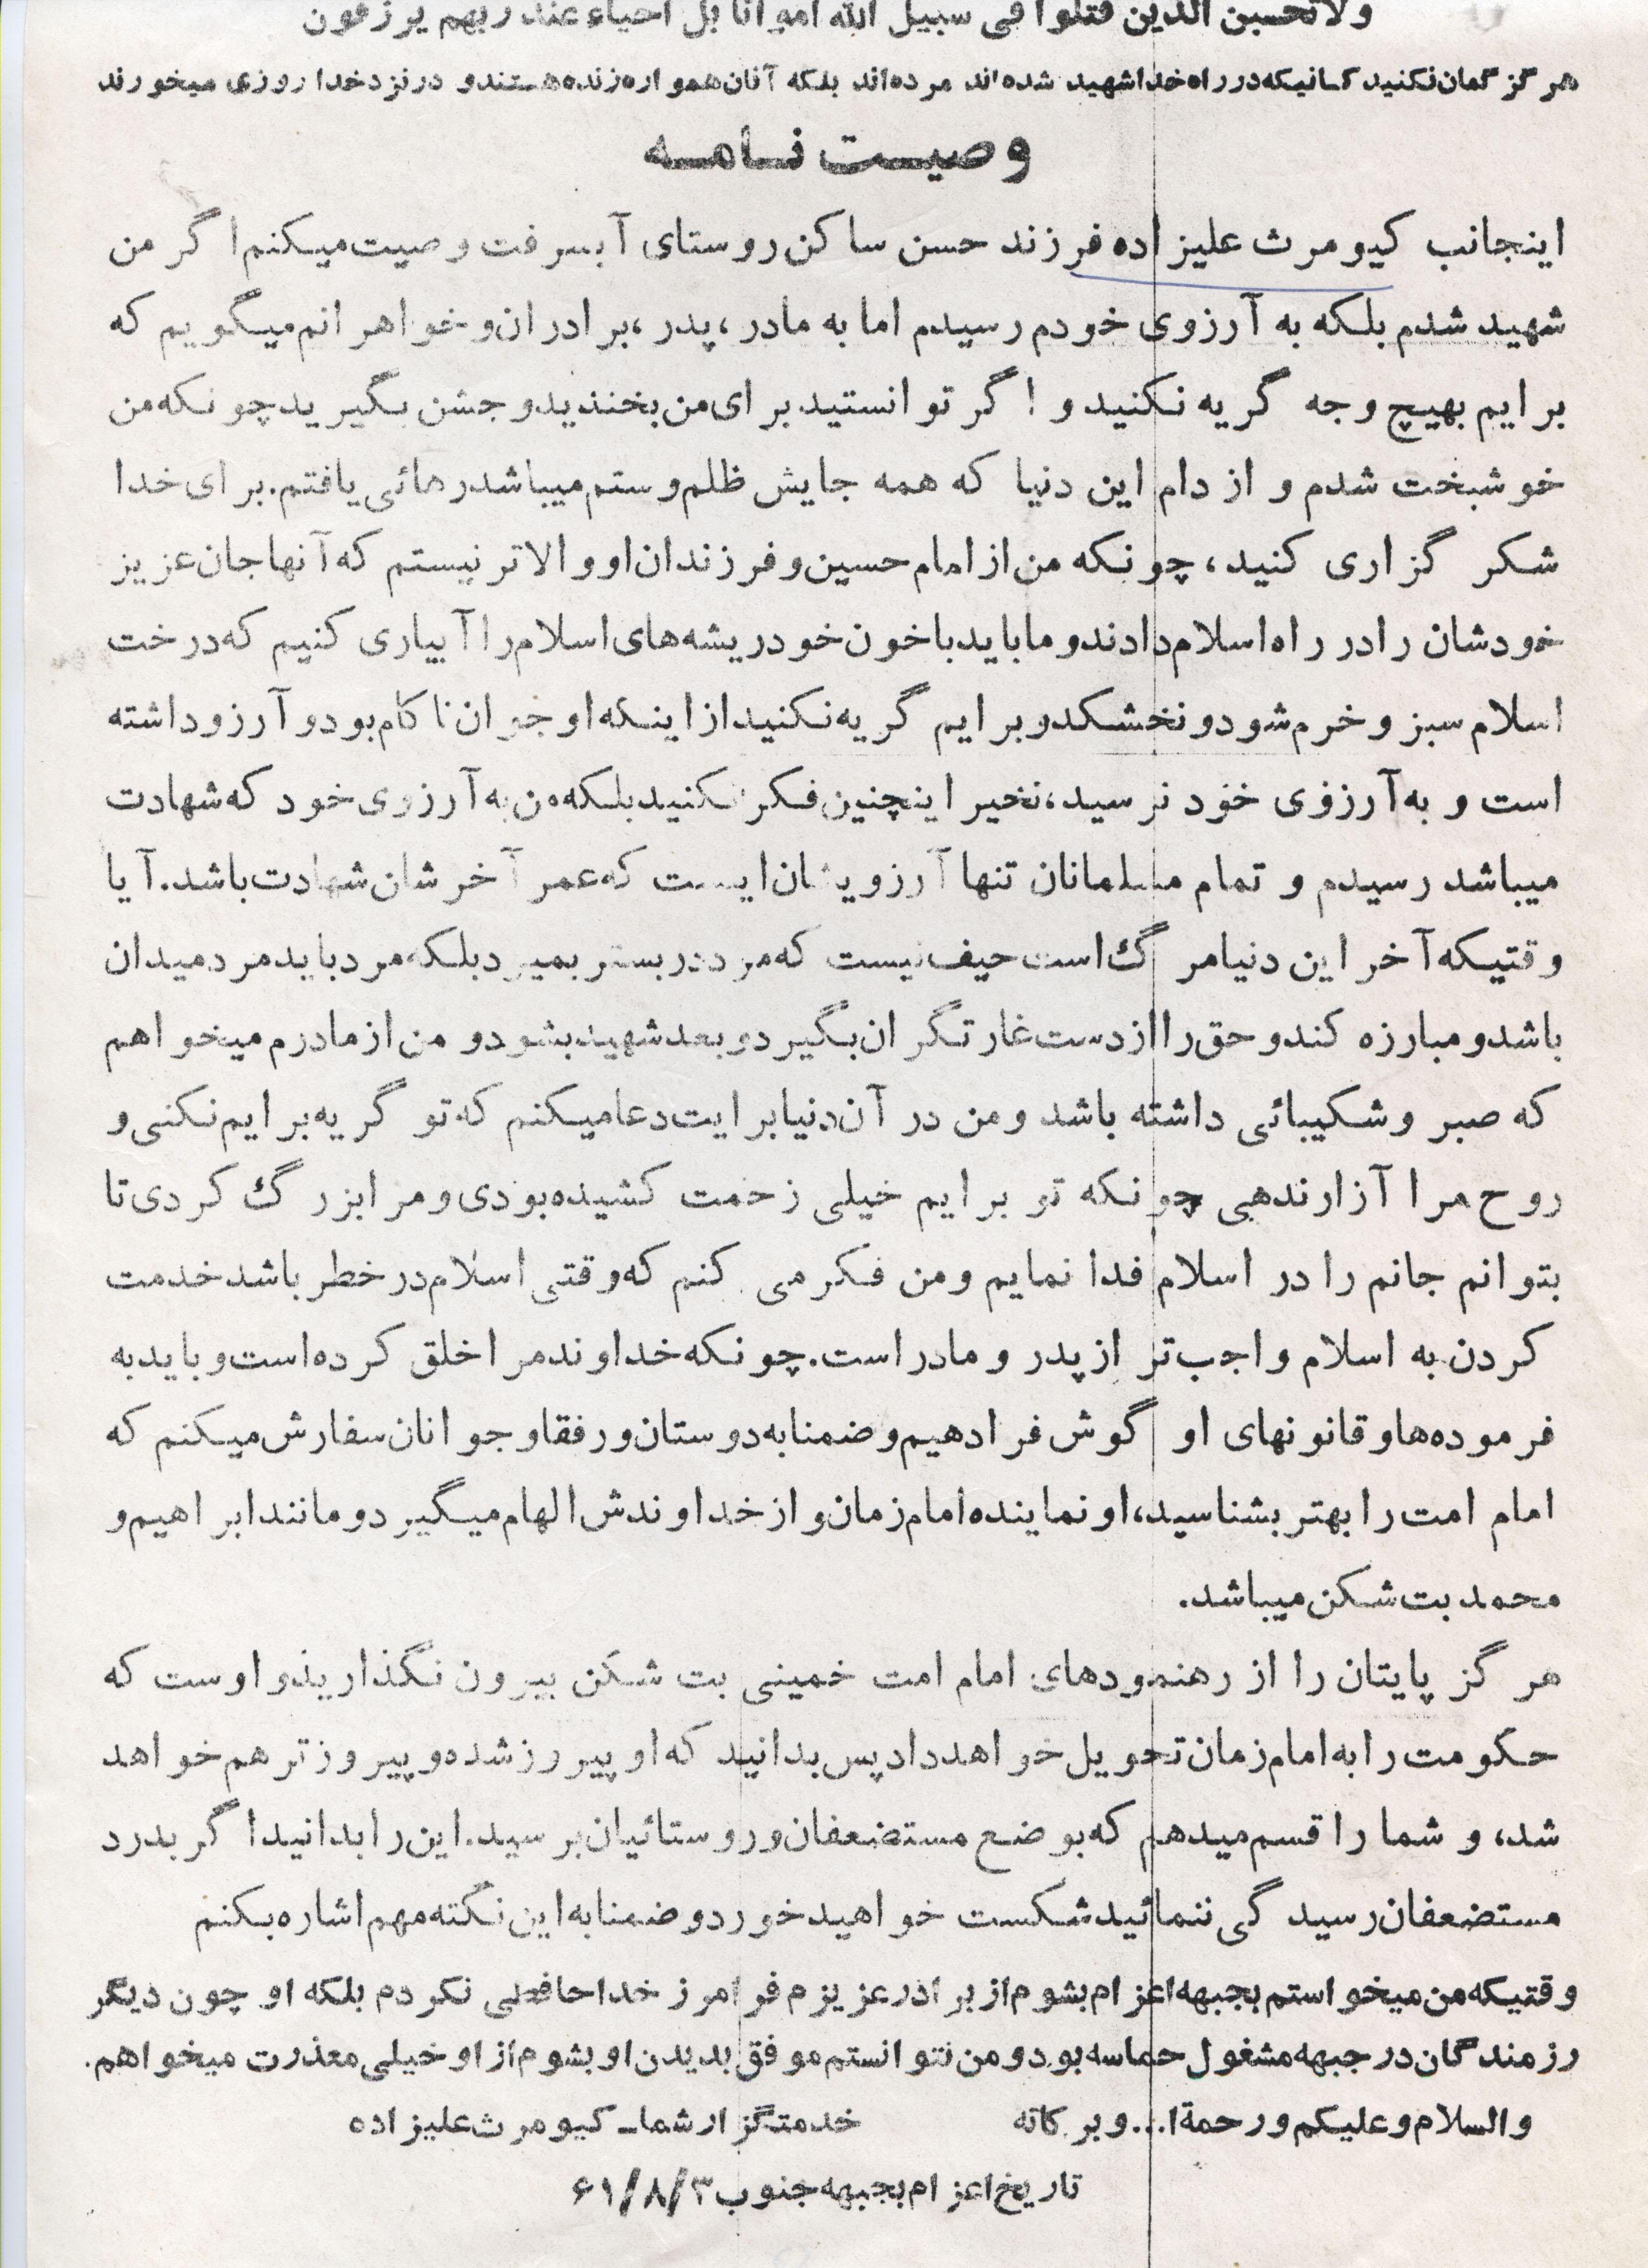 ولا تحسبن الذین قتلوا فی سبیل الله امواتا بل احیاء عند ربهم یرزقون
هرگز گمان نکنید کسانیکه در راه خدا شهید شده‌اند مرده‌اند بلکه آنان همواره زنده هستند و در نزد خدا روزی میخورند
وصیت نامه
اینجانب کیومرث علیزاده فرزند حسن ساکن روستای آبسرفت وصیت میکنم اگر من
شهید شدم بلکه به آرزوی خودم رسیدم اما به مادر، پدر، برادران و خواهرانم میگویم که
برایم بهیچ وجه گریه نکنید و اگر توانستید برای من بخندید و جشن بگیرید چونکه من
خوشبخت شدم و از دام این دنیا که همه جایش ظلم و ستم میباشد رهائی یافتم. برای خدا
شکر گزاری کنید، چونکه من از امام حسین و فرزندان او والاتر نیستم که آنها جان عزیز
خودشان را در راه اسلام دادند و ما باید با خون خود ریشه‌های اسلام را آبیاری کنیم که درخت
اسلام سبز و خرم شود و نخشکد و برایم گریه نکنید از اینکه او جوان ناکام بود و آرزو داشته
است و به آرزوی خود نرسید، نخیر اینچنین فکر نکنید بلکه من به آرزوی خود که شهادت
میباشد رسیدم و تمام مسلمانان تنها آرزویشان اینست که عمر آخرشان شهادت باشد. آیا
وقتیکه آخر این دنیا مرگ است حیف نیست که مرد در بستر بمیرد بلکه مرد باید مرد میدان
باشد و مبارزه کند و حق را از دست غارتگران بگیرد و بعد شهید بشود و من از مادرم میخواهم
که صبر و شکیبائی داشته باشد و من در آن دنیا برایت دعا میکنم که تو گریه برایم نکنی و
روح مرا آزار ندهی چونکه تو برایم خیلی زحمت کشیده بودی و مرا بزرگ کردی تا
بتوانم جانم را در اسلام فدا نمایم و من فکر می کنم که وقتی اسلام در خطر باشد خدمت
کردن به اسلام واجب‌تر از پدر و مادر است. چونکه خداوند مرا خلق کرده است و باید به
فرموده‌ها و قانونهای او گوش فرا دهیم و ضمنا به دوستان و رفقا و جوانان سفارش میکنم که
امام امت را بهتر بشناسید، او نماینده امام زمان و از خداوندش الهام میگیرد و مانند ابراهیم و
محمد بت شکن میباشد.
هرگز پایتان را از رهنمودهای امام امت خمینی بت شکن بیرون نگذارید و اوست که
حکومت را به امام زمان تحویل خواهد داد پس بدانید که او پیروز شده و پیروزتر هم خواهد
شد، و شما را قسم میدهم که بوضع مستضعفان و روستائیان برسید. این را بدانید اگر بدرد
مستضعفان رسیدگی ننمائید شکست خواهید خورد و ضمنا به این نکته مهم اشاره بکنم
وقتیکه من میخواستم بجبهه اعزام بشوم از برادر عزیزم فرامرز خداحافظی نکردم بلکه او چون دیگر
رزمندگان در جبهه مشغول حماسه بود و من نتوانستم موفق بدیدن او بشوم از او خیلی معذرت میخواهم.
والسلام و علیکم و رحمة ا... و برکاته خدمتگزار شما ـ کیومرث علیزاده
تاریخ اعزام بجبهه جنوب ۶۱/۸/۳